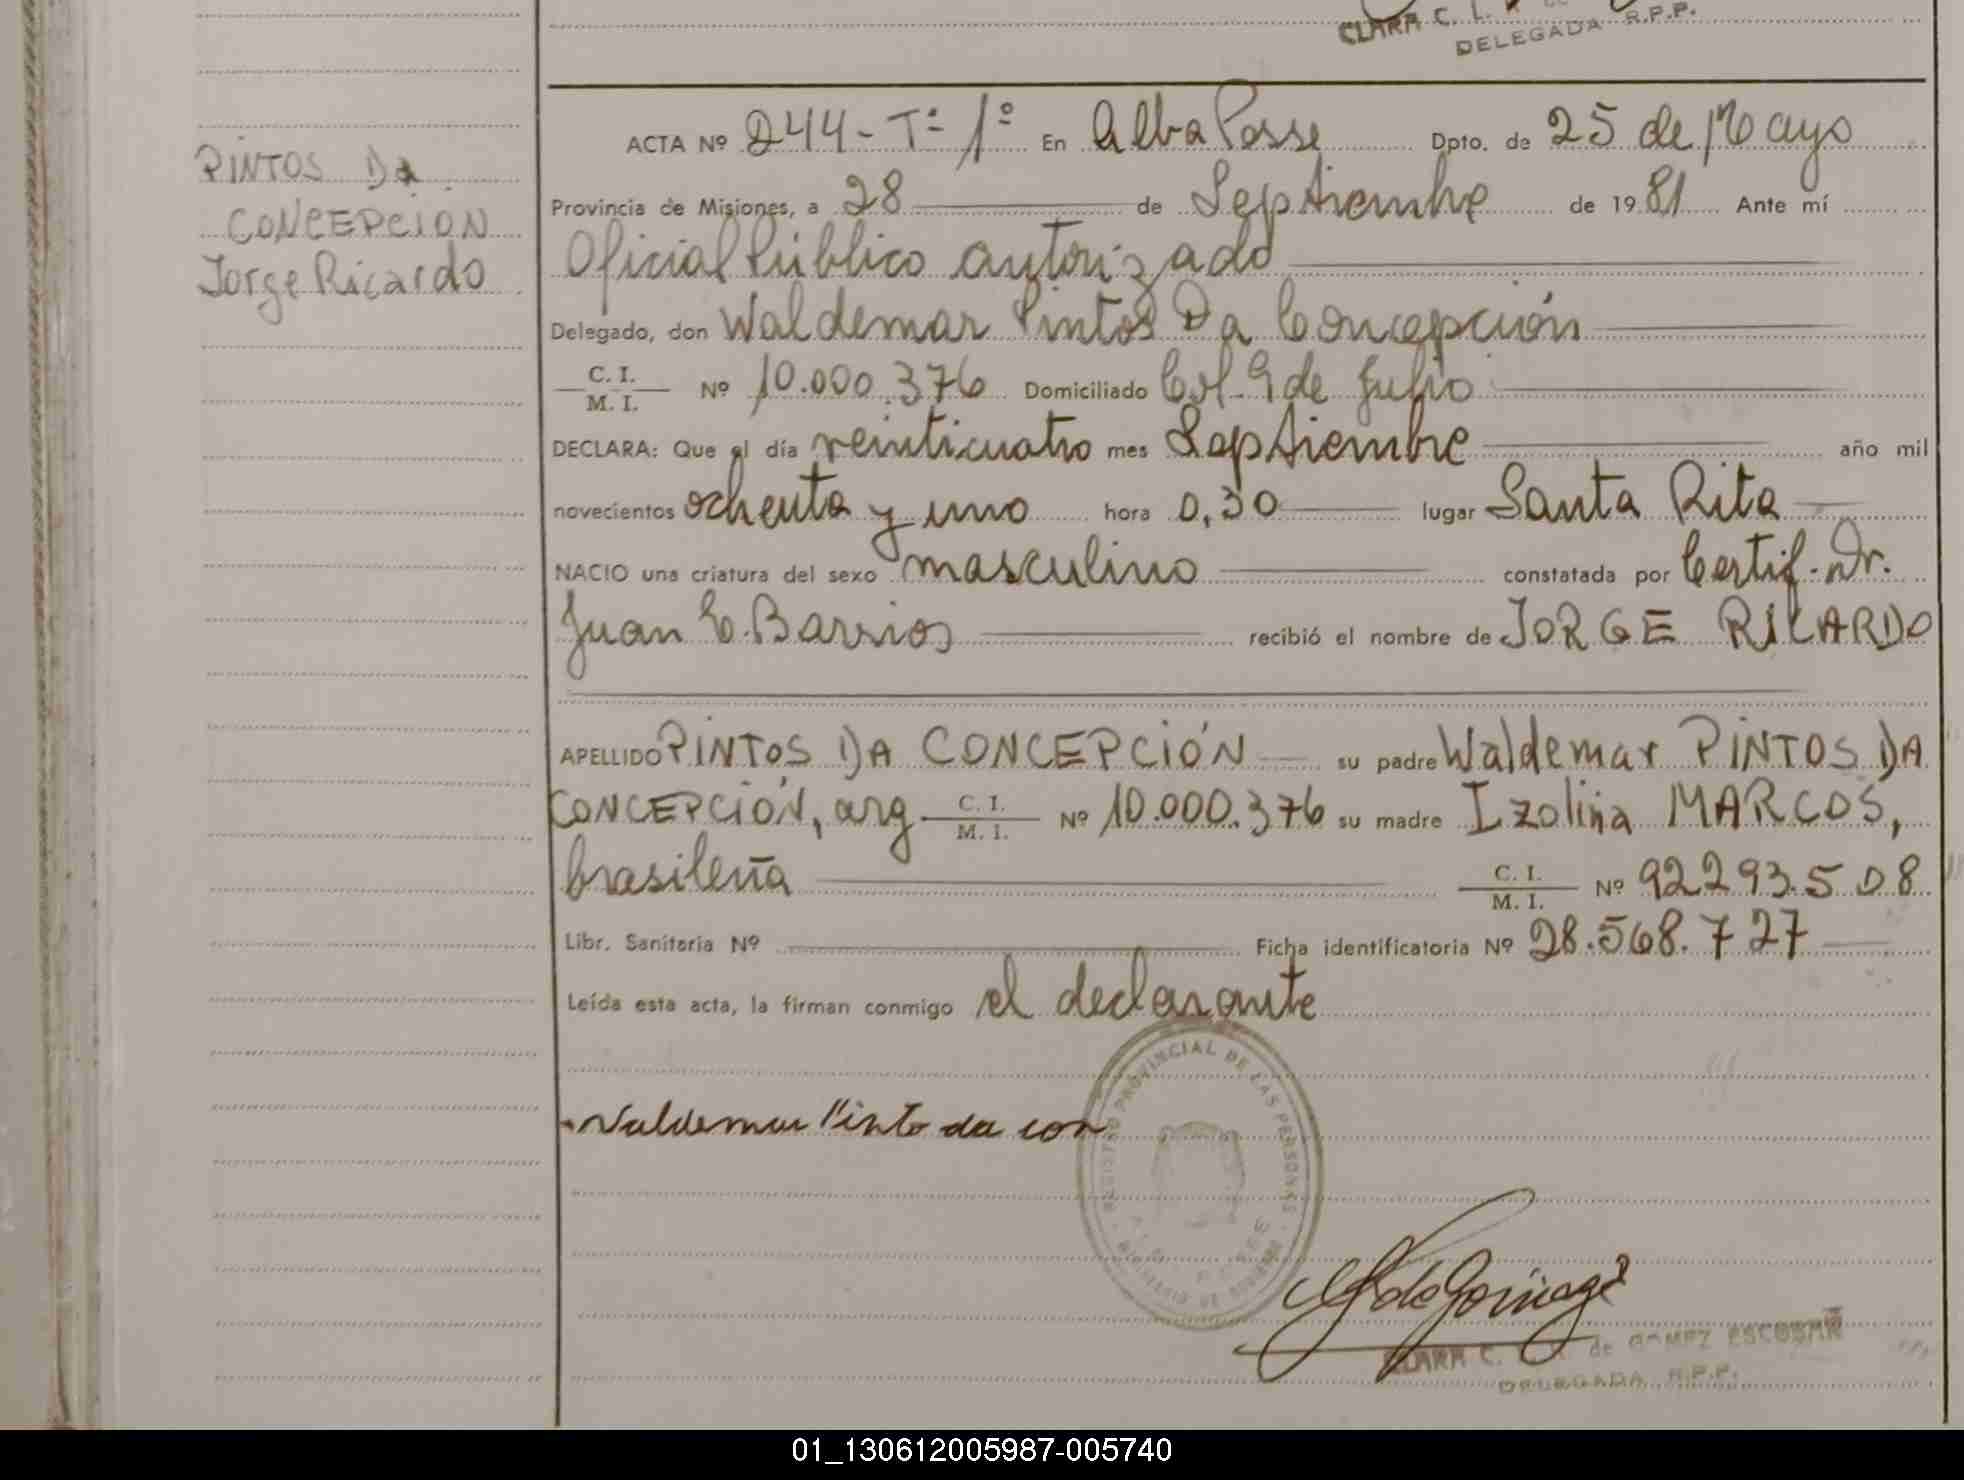 CLARA C. L.
DELEGADA R.P.P.
PINTOS DA
CONCEPCIÓN
Jorge Ricardo
ACTA Nº 244 - Tº 1º En Alba Posse Dpto. de 25 de Mayo
Provincia de Misiones, a 28 de Septiembre de 1981 Ante mí
Oficial Público autorizado
Delegado, don Waldemar Pintos Da Concepción
C. I.
M. I. Nº 10.000.376 Domiciliado Col. 9 de Julio
DECLARA: Que el día veinticuatro mes Septiembre año mil
novecientos ochenta y uno hora 0,30 lugar Santa Rita
NACIO una criatura del sexo masculino constatada por Certif. Dr.
Juan C. Barrios recibió el nombre de JORGE RICARDO
APELLIDO PINTOS DA CONCEPCIÓN su padre Waldemar PINTOS DA
CONCEPCIÓN, arg. C. I. M. I. Nº 10.000.376 su madre Izolina MARCOS,
brasileña C. I. M. I. Nº 92293.508
Libr. Sanitaria Nº Ficha identificatoria Nº 28.568.727
Leída esta acta, la firman conmigo el declarante
Valdemar Pinto da con
REGISTRO PROVINCIAL DE LAS PERSONAS
MINISTERIO DE GOBIERNO
CLARA C. de GOMEZ ESCOBAR
DELEGADA R.P.P.
01_130612005987-005740